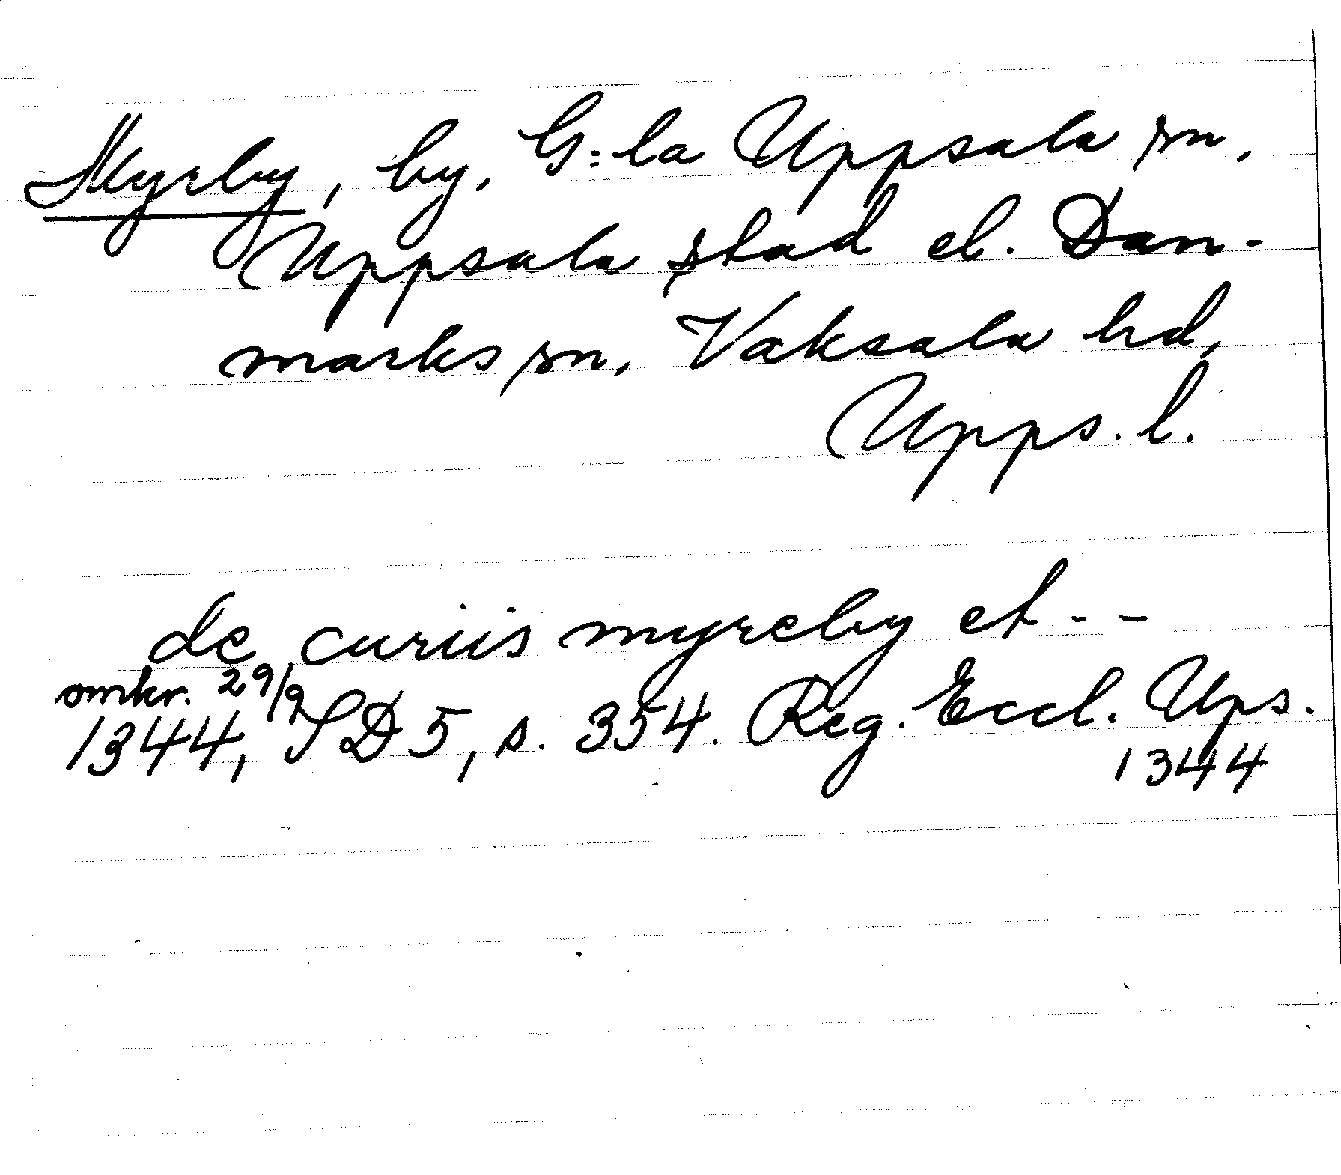 Myrby, by, G:la Uppsala sn,
Uppsala stad el. Dan-
marks sn, Vaksala hd,
Upps. l.
de curiis myreby et - -
omkr. 29/9
1344, SD 5, s. 354. Reg. Eccl. Ups.
1344